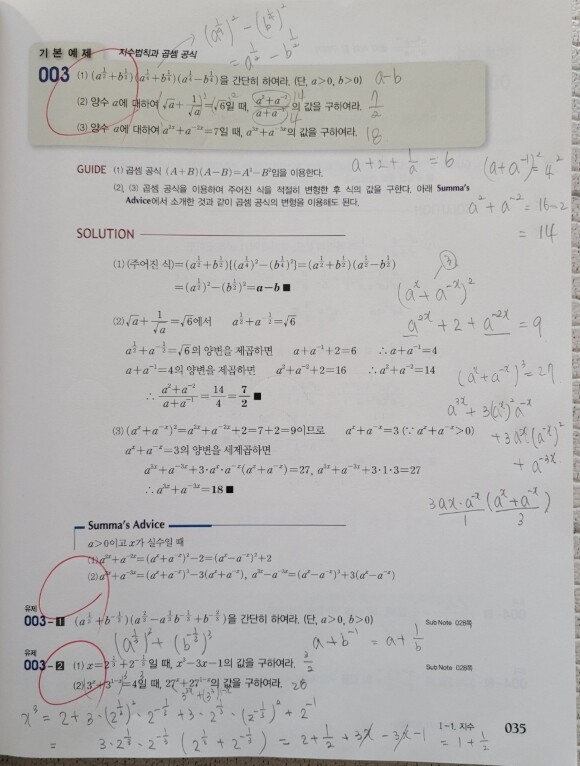 (a^{1/4})² - (b^{1/4})²
= a^{1/2} - b^{1/2}
기본 예제 지수법칙과 곱셈 공식
003 (1) (a^{1/2}+b^{1/2})(a^{1/4}+b^{1/4})(a^{1/4}-b^{1/4})을 간단히 하여라. (단, a>0, b>0) a-b
(2) 양수 a에 대하여 √a + 1/√a = √6일 때, (a²+a^{-2})/(a+a^{-1})의 값을 구하여라. 14 4 7/2
(3) 양수 a에 대하여 a^{2x}+a^{-2x}=7일 때, a^{3x}+a^{-3x}의 값을 구하여라. 18
a+2+1/a = 6
(a+a^{-1})² = 4²
a²+a^{-2} = 16-2
= 14
GUIDE (1) 곱셈 공식 (A+B)(A-B)=A²-B²임을 이용한다.
(2), (3) 곱셈 공식을 이용하여 주어진 식을 적절히 변형한 후 식의 값을 구한다. 아래 Summa's
Advice에서 소개한 것과 같이 곱셈 공식의 변형을 이용해도 된다.
SOLUTION
(1) (주어진 식)=(a^{1/2}+b^{1/2}){(a^{1/4})²-(b^{1/4})²}=(a^{1/2}+b^{1/2})(a^{1/2}-b^{1/2})
=(a^{1/2})²-(b^{1/2})²=a-b ■
(2) √a+1/√a=√6에서 a^{1/2}+a^{-1/2}=√6
a^{1/2}+a^{-1/2}=√6의 양변을 제곱하면 a+a^{-1}+2=6 ∴ a+a^{-1}=4
a+a^{-1}=4의 양변을 제곱하면 a²+a^{-2}+2=16 ∴ a²+a^{-2}=14
∴ (a²+a^{-2})/(a+a^{-1})=14/4=7/2 ■
(3) (a^x+a^{-x})²=a^{2x}+a^{-2x}+2=7+2=9이므로 a^x+a^{-x}=3 (∵ a^x+a^{-x}>0)
a^x+a^{-x}=3의 양변을 세제곱하면
a^{3x}+a^{-3x}+3·a^x·a^{-x}(a^x+a^{-x})=27, a^{3x}+a^{-3x}+3·1·3=27
∴ a^{3x}+a^{-3x}=18 ■
③
(a^x+a^{-x})²
a^{2x}+2+a^{-2x} = 9
(a^x+a^{-x})³ = 27
a^{3x}+3(a^x)²a^{-x}
+3a^x·(a^{-x})²
+ a^{-3x}
3ax·a^{-x}/1 (a^x+a^{-x}/3)
Summa's Advice
a>0이고 x가 실수일 때
(1) a^{2x}+a^{-2x}=(a^x+a^{-x})²-2=(a^x-a^{-x})²+2
(2) a^{3x}+a^{-3x}=(a^x+a^{-x})³-3(a^x+a^{-x}), a^{3x}-a^{-3x}=(a^x-a^{-x})³+3(a^x-a^{-x})
유제
003-1 (a^{1/3}+b^{-1/3})(a^{2/3}-a^{1/3}b^{-1/3}+b^{-2/3})을 간단히 하여라. (단, a>0, b>0) Sub Note 028쪽
(a^{1/3})³+(b^{-1/3})³ a+b^{-1} = a+1/b
유제
003-2 (1) x=2^{1/3}+2^{-1/3}일 때, x³-3x-1의 값을 구하여라. 3/2 Sub Note 028쪽
(2) 3^x+3^{1-x}=4일 때, 27^x+27^{1-x}의 값을 구하여라. 28
x³ = 2+3·(2^{1/3})²·2^{-1/3}+3·2^{1/3}·(2^{-1/3})²+2^{-1}
= 3·2^{1/3}·2^{-1/3}(2^{1/3}+2^{-1/3}) = 2+1/2+3x-3x-1 = 1+1/2
Ⅰ-1. 지수 035